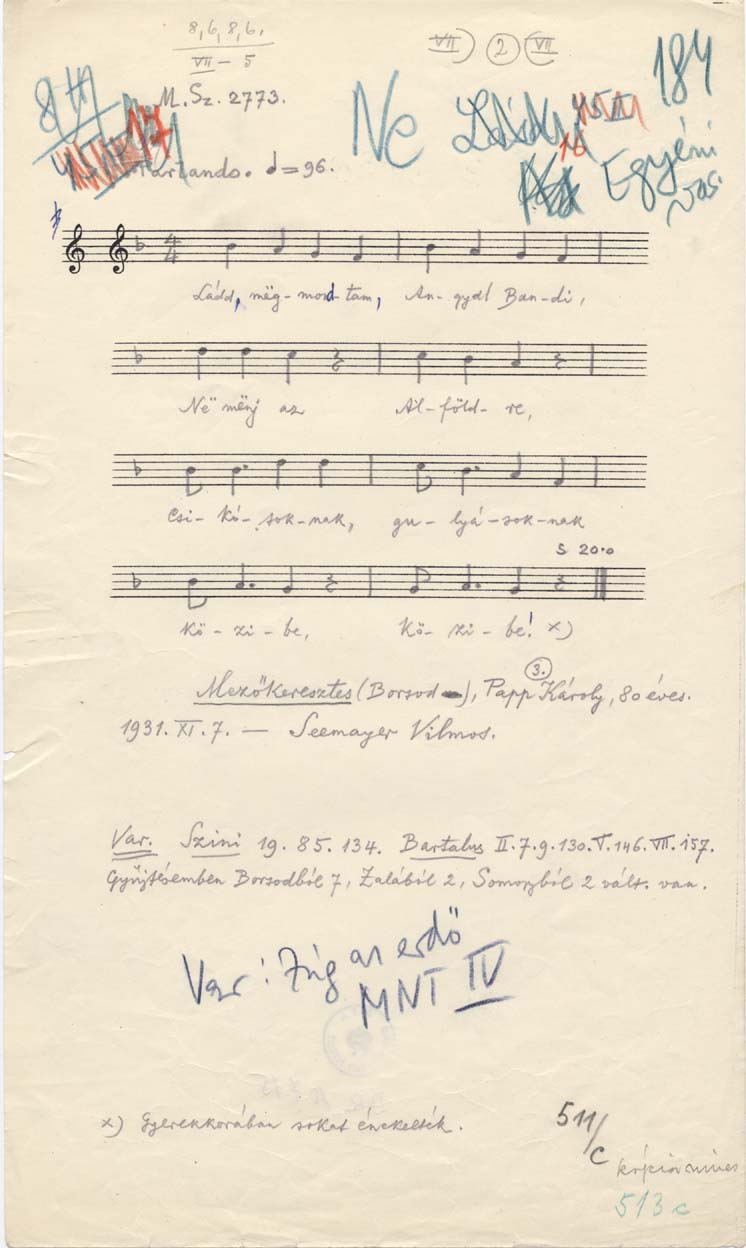 8, 6, 8, 6.
VII – 5
VII) 2 (VII
M. Sz. 2773.
Ne
184
16
Egyéni
Parlando. = 96.
Ládd, mëg-mond-tam, An-gyal Ban-di,
Në mënj az Al-föld-re,
Csi-kó-sok-nak, gu-lyá-sok-nak
S 20.0
Kö-zi-be, Kö-zi-be! x)
3.
Mezőkeresztes (Borsod), Papp Károly, 80 éves.
1931. XI. 7. — Seemayer Vilmos.
Var. Szini 19. 85. 134. Bartalus II. 7. 9. 130. V. 146. VII. 157.
Gyűjtésemben Borsodból 7, Zalából 2, Somogyból 2 vált. van.
Var: Zúg az erdő
MNT IV
x) Gyerekkorában sokat énekelték.
511/c
513 c